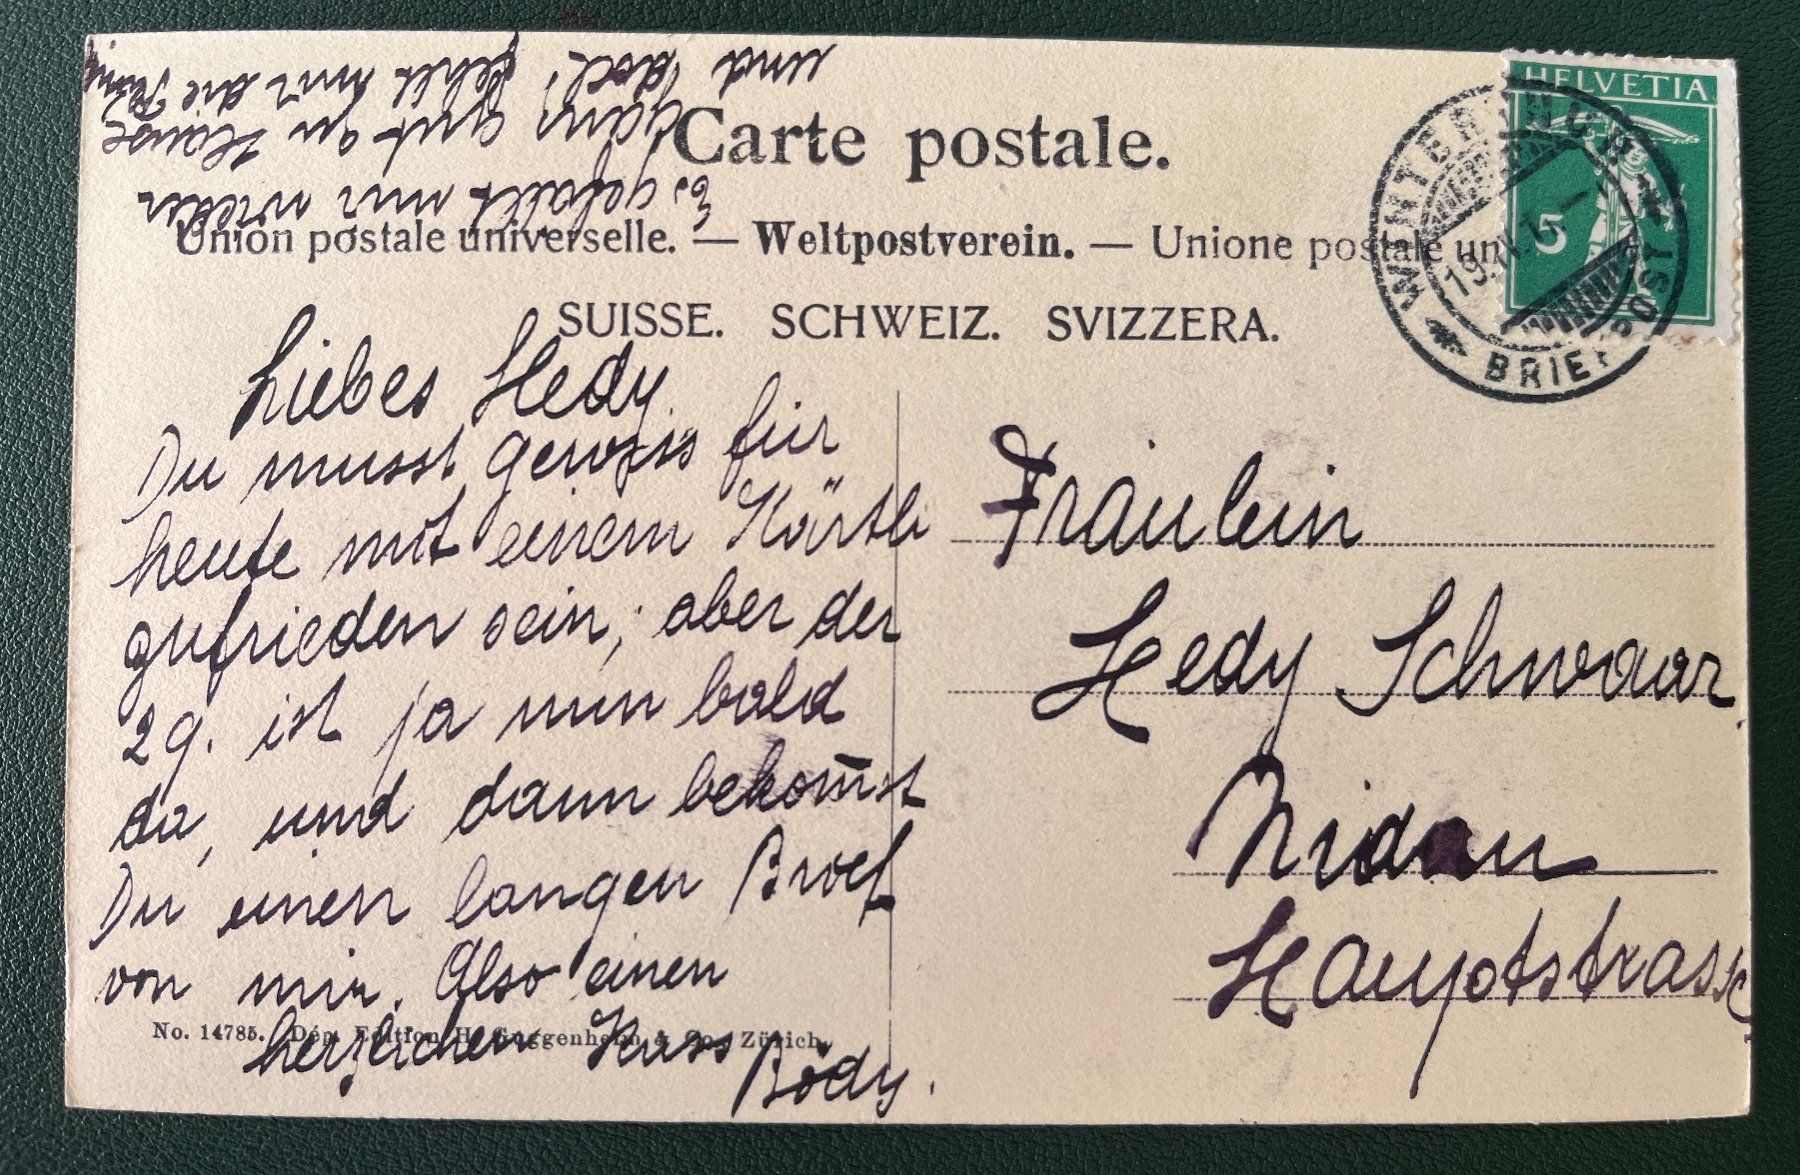 Carte postale.
Union postale universelle. — Weltpostverein. — Unione postale un
SUISSE. SCHWEIZ. SVIZZERA.
HELVETIA
5
WINTERTHUR
BRIEFPOST
Liebes Hedy.
Du musst gewiss für
heute mit einem Kärtli
zufrieden sein; aber der
29. ist ja nun bald
da, und dann bekom̅st
Du einen langen Brief
von mir. Also einen
herzlichen Kuss
Bödy.
Es gefällt mir wieder
ganz gut zu Hause
und doch fehlt mir die
Fräulein
Hedy Schwaar.
Nidau
Hauptstrasse
No. 14785. Dép. Edition H. Guggenheim & Co., Zürich.